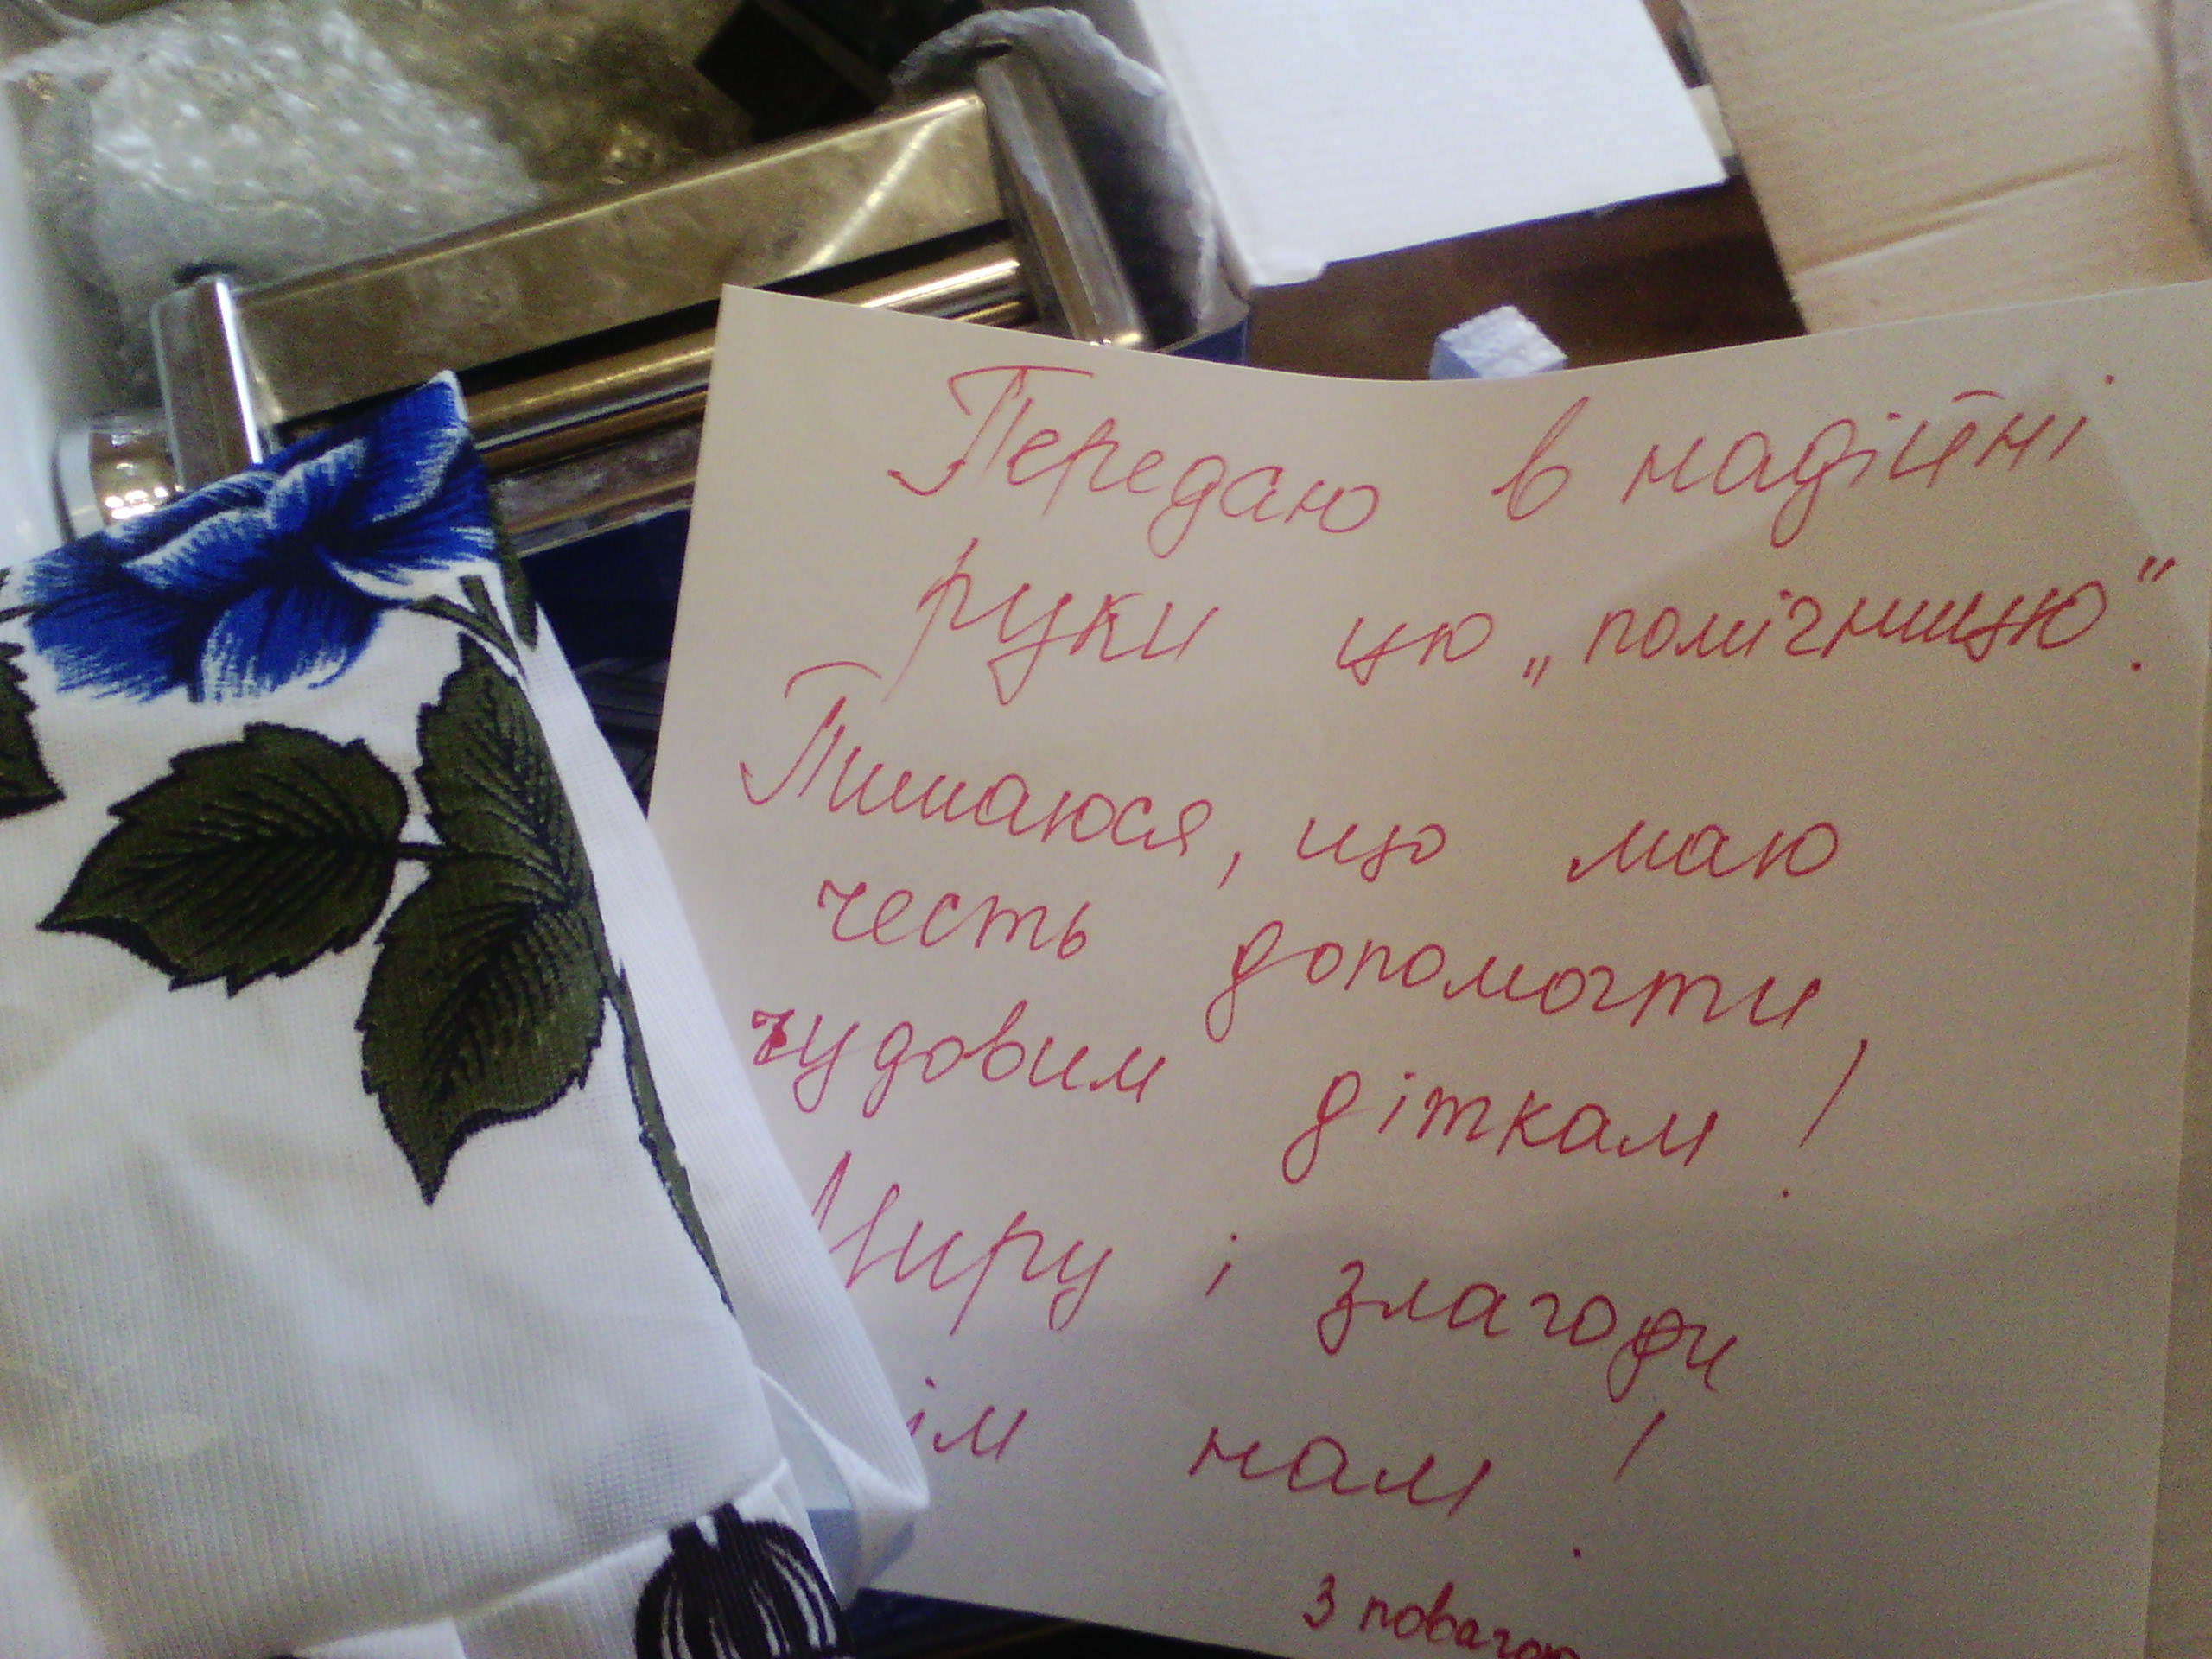 Передаю в надійні
руки цю „помічницю".
Пишаюся, що маю
честь допомогти,
чудовим діткам!
Миру і злагоди
ім нам!
З повагою